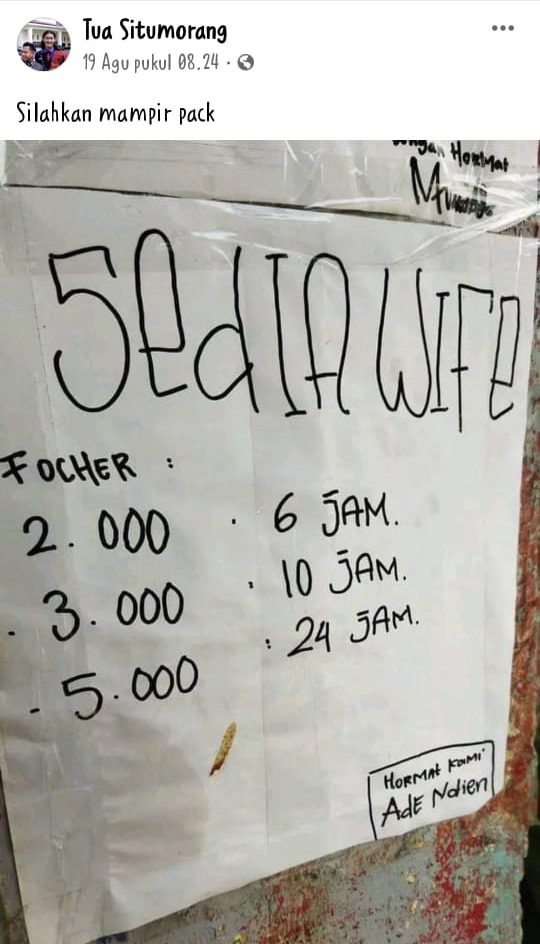 Tua Situmorang
19 Agu pukul 08.24
Silahkan mampir pack
Hormat
SedIA WIFe
FOCHER :
2.000 : 6 JAM.
- 3.000 : 10 JAM.
- 5.000 : 24 JAM.
HORMAT KAMI
AdE Ndien